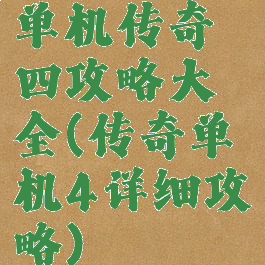 单机传奇
四攻略大
全(传奇单
机4详细攻
略)